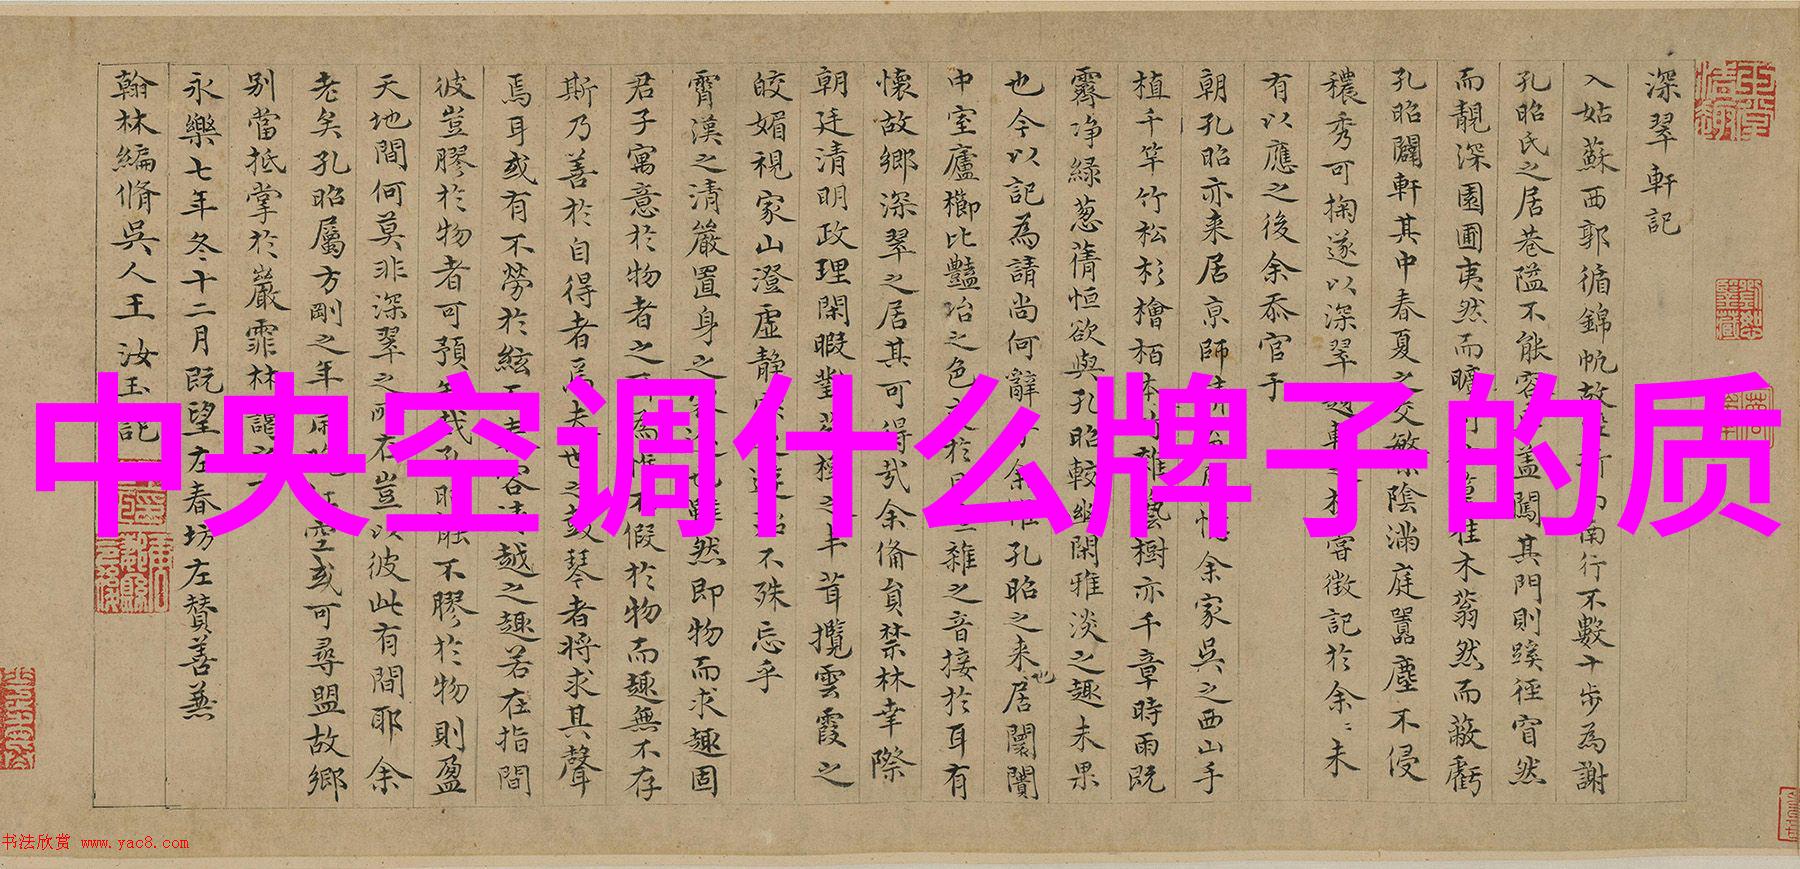 深翠軒記
入姑蘇西郭循錦帆故
南行不數十步為謝
孔昭氏之居巷隘不能容
盖闖其門則蹊徑窅然
而靚深園圃夷然而曠
佳木蓊然而蔽虧
孔昭闢軒其中春夏之交繁陰滿庭囂塵不侵
穠秀可掬遂以深翠
嘗徵記於余余未
有以應之後余忝官于
朝孔昭亦来居京師
余家吳之西山手
植千竿竹松杉檜栢
樹亦千章時雨既
霽净緑葱蒨恒欲與孔昭較幽閑雅淡之趣未果
也今以記為請尚何辭
余惟孔昭之来居闤闠
中室廬櫛比豔冶之色
雜之音接於耳有
懷故鄉深翠之居其可得哉余俻員禁林幸際
朝廷清明政理閑暇
攬雲霞之
皎媚視家山澄虚静
不殊忘乎
霄漢之清嚴置身之
然即物而求趣固
君子寓意於物者之
假於物而趣無不存
斯乃善於自得者焉夫
之鼓琴者將求其聲
焉耳或有不勞於絃
越之趣若在指間
彼豈膠於物者可預
不膠於物則盈
天地間何莫非深翠之所在豈
彼此有間耶余
老矣孔昭屬方剛之年
或可尋盟故鄉
別當抵掌於巖霏林
永樂七年冬十二月既望左春坊左贊善兼
翰林編脩吳人王汝玉記
中央空调什么牌子的质
书法欣赏 www.yac8.com